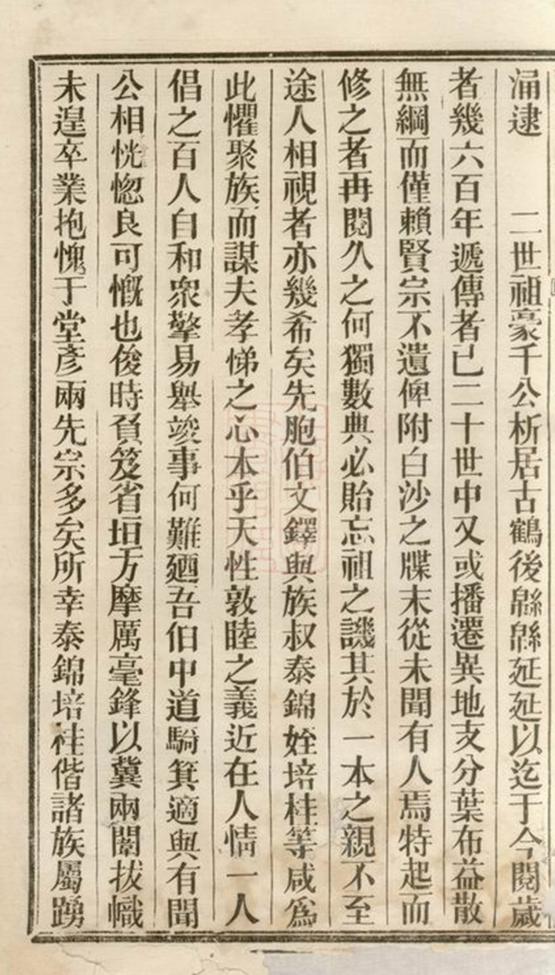 涌逮　　二世祖豪千公析居古鶴後緜緜延延以迄于今閱歲
者幾六百年遞傳者已二十世中又或播遷異地支分葉布益散
無綱而僅賴賢宗不遺俾附白沙之牒末從未聞有人焉特起而
修之者再閱久之何獨數典必貽忘祖之譏其於一本之親不至
途人相視者亦幾希矣先胞伯文鐸與族叔泰錦姪培桂等咸爲
此懼聚族而謀夫孝悌之心本乎天性敦睦之義近在人情一人
倡之百人自和衆擎易舉竣事何難廼吾伯中道騎箕適與有聞
公相恍惚良可慨也俊時負笈省垣方摩厲毫鋒以冀兩闈拔幟
未遑卒業抱愧于堂彥兩先宗多矣所幸泰錦培桂偕諸族屬踴